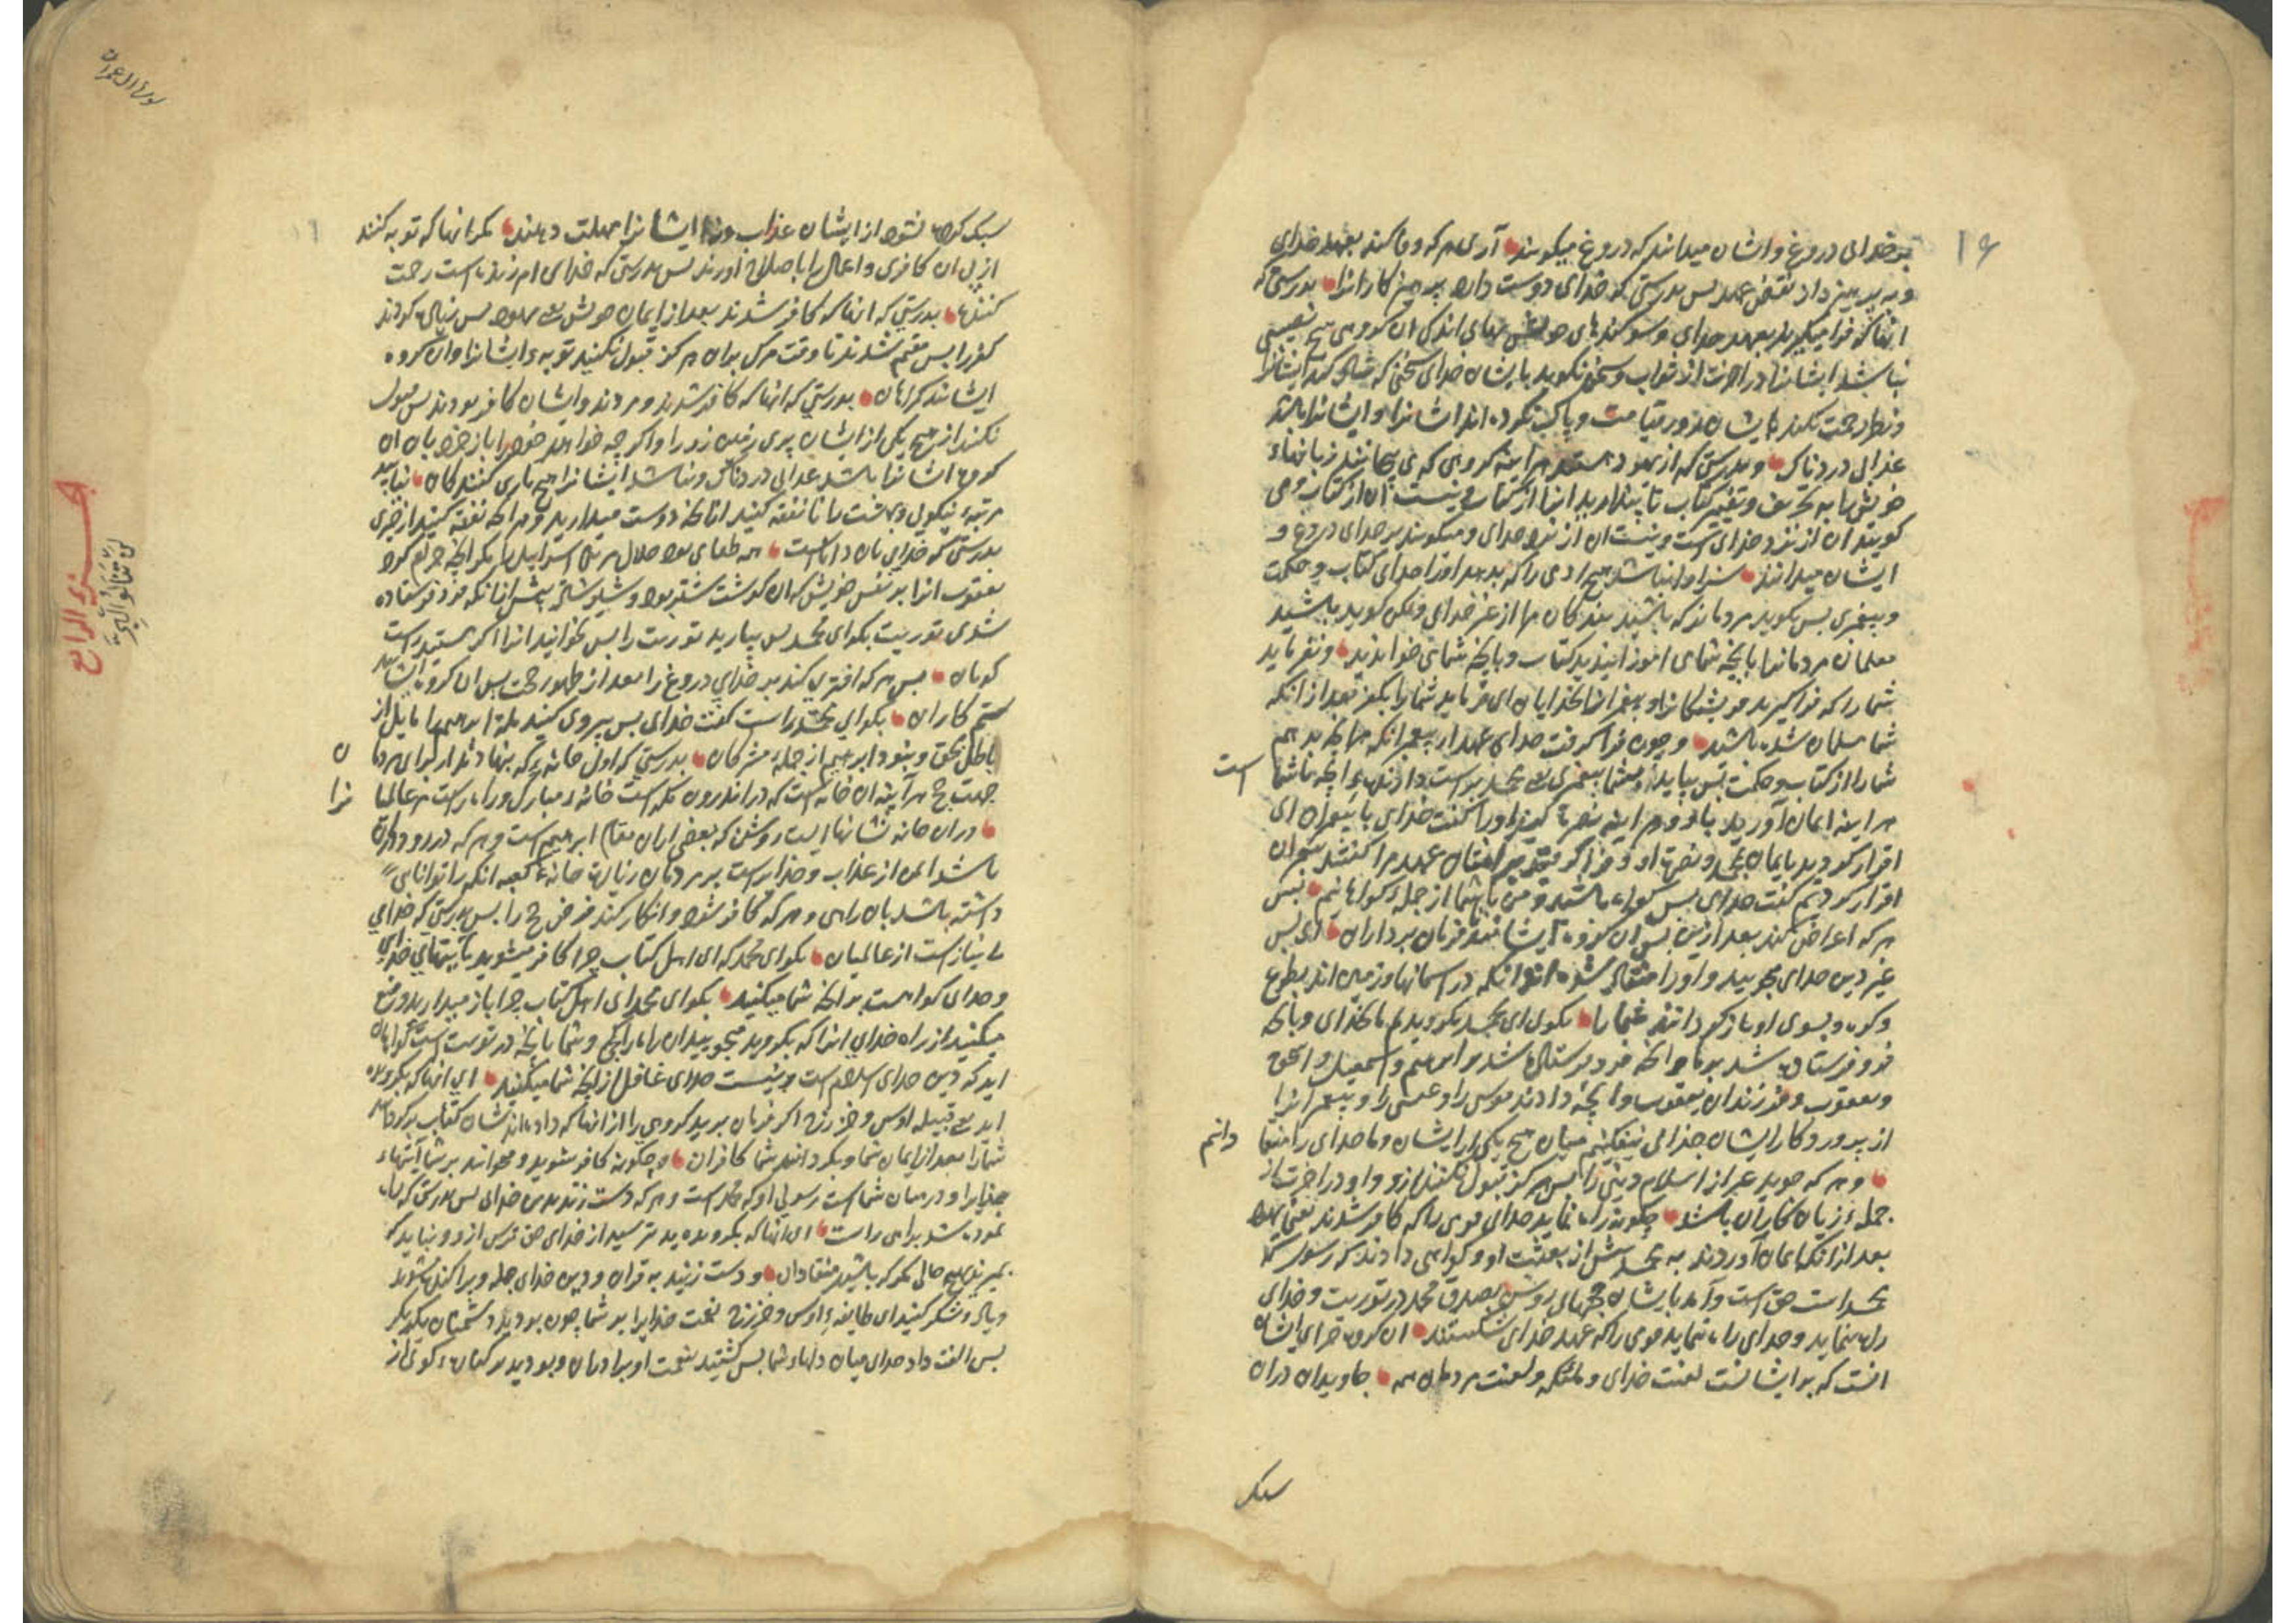 ۱۶
بر خدای دروغ و ایشان میدانند که دروغ میگویند آری هر که وفا کند بعهد خدای
و بپرهیزد از نقض عهد پس بدرستی که خدای دوست دارد پرهیزکارانرا بدرستی که
آنها که فرا میگیرند بعهد خدای و سوگندهای خویش بهای اندک آن گروه هیچ نصیبی
نباشد ایشانرا در آخرت از ثواب و سخن نگوید بایشان خدای سخنی که شاد کند ایشانرا
و نظر رحمت نکند بایشان روز قیامت و پاک نکرده اند ایشانرا و ایشانرا باشد
عذابی دردناک و بدرستی که از یهود هستند هر آینه گروهی که می پیچانند زبانهاء
خویش را به تحریف و تغییر کتاب تا پندارید آنرا از کتاب و نیست آن از کتاب و می
گویند آن از نزد خدای است و نیست آن از نزد خدای و میگویند بر خدای دروغ و
ایشان میدانند سزاوار نباشد هیچ آدمی را که بدهد اورا خدای کتاب و حکمت
و پیغمبری پس گوید مردمانرا که باشید بندگان مرا از غیر خدای ولکن گوید باشید
معلمان مردمانرا بآنچه شما می آموزانیدید کتاب و بآنچه شما می خواندید و نفرماید
شما را که فرا گیرید فریشتگانرا و پیغمبرانرا بخدایان ای فرماید شما را بکفر بعد از آنکه
شما مسلمان شده باشید و چون فرا گرفت خدای عهد از پیغمبران که هر آنچه بدهم
شما را از کتاب و حکمت پس بیاید بشما پیغمبری یعنی محمد براست دارنده آنچه با شما
است
هر آینه ایمان آورید باو و هر آینه نصرت کنید اورا گفت خدای با پیغمبران ای
اقرار کردید بایمان محمد و نصرت او و فرا گرفتید بر ایشان عهد مرا گفتند پیغمبران
اقرار کردیم گفت خدای پس گواه باشید و من با شما از جمله گواهانم پس
هر که اعراض کند بعد ازین پس آن گروه ایشانند فرمان برداران ای پس
غیر دین خدای میجویید و اورا منقاد شده آنکه در آسمانها و زمین اند بطوع
و کره و بسوی او باز گردانند شما را بگو ای محمد بگرویدیم بخدای و بآنچه
فرو فرستاده شد بر ما و آنچه فرو فرستاده شد بر ابراهیم و اسمعیل و اسحق
و یعقوب و فرزندان یعقوب و آنچه دادند موسی را و عیسی را و پیغمبرانرا
از پروردگار ایشان جدایی نیفکنیم میان هیچ یکی از ایشان و ما خدای را منقا
دانیم
و هر که جوید غیر از اسلام دینی را پس هرگز قبول نکنند ازو و او در آخرت از
جمله زیان کاران باشد چگونه راه نماید خدای قومی را که کافر شدند یعنی یهود
بعد از آنکه ایمان آوردند به محمد پیش از بعثت او و گواهی دادند که رسول که
محمد است حق است و آمد بایشان حجتهای روشن بصدق محمد در توریت و خدای
راه ننماید و خدای راه ننماید قومی را که عهد خدای شکستند آن گروه جزای ایشان
آنست که بر ایشانست لعنت خدای و ملئکه و لعنت مردمان همه جاویدان در آن
سبک
سورة آل عمران
سبک کرده نشود از ایشان عذاب و نه ایشانرا مهلت دهند مگر آنها که توبه کنند
از پی آن کافری و اعمال را باصلاح آورند پس بدرستی که خدای آمرزنده است رحمت
کننده بدرستی که آنها که کافر شدند بعد از ایمان خویش یعنی یهود پس زیاده کردند
کفر را پس مقیم شدند تا وقت مرگ بر آن هرگز قبول نکنند توبه ایشانرا و آن گروه
ایشانند گمراهان بدرستی که آنها که کافر شدند و مردند و ایشان کافر بودند پس قبول
نکنند از هیچ یکی از ایشان پری زمین زر را و اگر چه خواهد خود را باز خرد بآن آن
گروه ایشانرا باشد عذابی دردناک و نباشد ایشانرا هیچ یاری کنندگان نیابید
مرتبه نیکویی و بهشت را تا نفقه کنید از آنچه دوست میدارید و هر آنچه نفقه کنید از چیزی
بدرستی که خدای بآن داناست همه طعامی بود حلال مر بنی اسرائیل را مگر آنچه حرام کرد
یعقوب آنرا بر نفس خویش که آن گوشت شتر بود و شیر شتر پیش از آنکه فرو فرستاده
شدی توریت بگو ای محمد پس بیارید توریت را پس بخوانید آنرا اگر هستید راست
گویان پس هر که افتری کند بر خدای دروغ را بعد از ظهور حجت پس آن گروه ایشانند
ستمکاران بگو ای محمد راست گفت خدای پس پیروی کنید ملت ابرهیم را مایل از
باطل بحق و نبود ابرهیم از جمله مشرکان بدرستی که اول خانه که بنهادند از برای مردما
ن
جهت حج هر آینه آن خانه است که در اندرون مکه است خانه مبارک و راه راست مر عالمیا
نرا
در آن خانه نشانهاییست روشن که بعضی از آن مقام ابرهیم است و هر که در رود در آن
باشد ایمن از عذاب و خدایراست بر مردمان زیارت خانه کعبه آنکه را توانایی
داشته باشد بآن راهی و هر که کافر شود و انکار کند فرض حج را پس بدرستی که خدای
بی نیاز است از عالمیان بگو ای محمد که ای اهل کتاب چرا کافر میشوید بآیتهای خدای
و خدای گواهست بر آنچه شما میکنید بگو ای محمد ای اهل کتاب چرا باز میدارید و منع
میکنید از راه خدای آنرا که بگروید میجویید آن راه را کجی و شما بآنچه در توریت است گواهان
اید که دین خدای اسلام است و نیست خدای غافل از آنچه شما میکنید ای آنها که بگرویده
اید یعنی قبیله اوس و خزرج اگر فرمان برید گروهی را از آنها که داده اند ایشان کتاب برگردانند
شما را بعد از ایمان شما و بگردانند شما کافران و چگونه کافر میشوید و میخوانند بر شما آیتهاء
خدایرا و در میان شماست رسول او که محمد است و هر که دست زند بدین خدای پس بدرستی که راه
نموده شد براهی راست ای آنها که بگرویده اید بترسید از خدای حق ترس ازو و نباید که
بمیرید بهیچ حالی مگر که باشید منقادان و دست زنید به قران و دین خدای جمله و پراکنده مشوید
و یاد و شکر کنید ای طایفه اوس و خزرج نعمت خدایرا بر شما چون بودید دشمنان یکدیگر
پس الفت داد خدای میان دلهاء شما پس گشتید بنعمت او برادران و بودید بر کناره گوی از
جزو الرابع
لن تنالوا البر